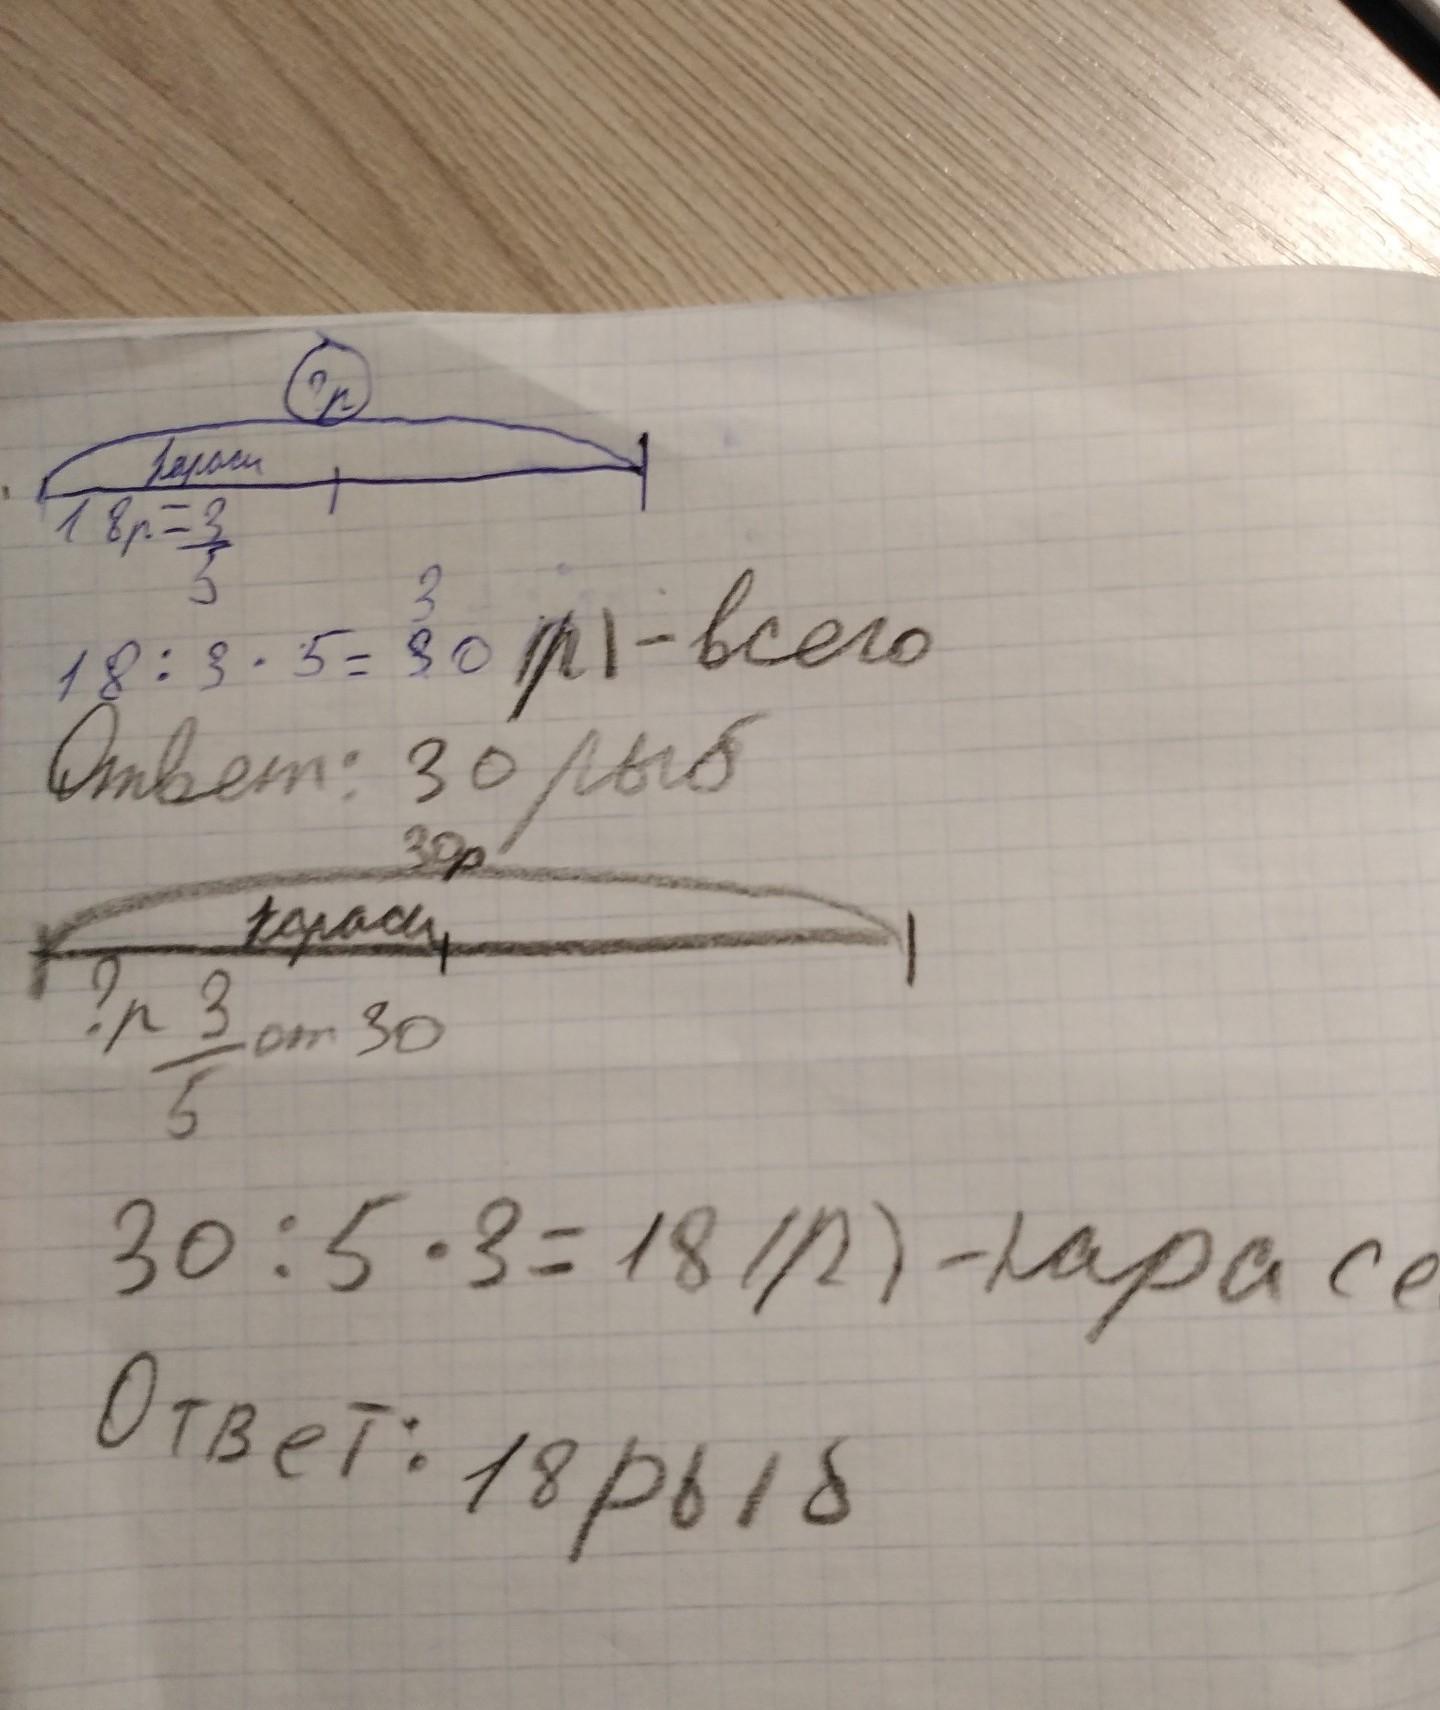 ?р
караси
18р = 3/5
3
18 : 3 · 5 = 30 (р) - всего
Ответ: 30 рыб
30р
караси
?р 3/5 от 30
30 : 5 · 3 = 18 (р) - карасе
Ответ: 18 рыб